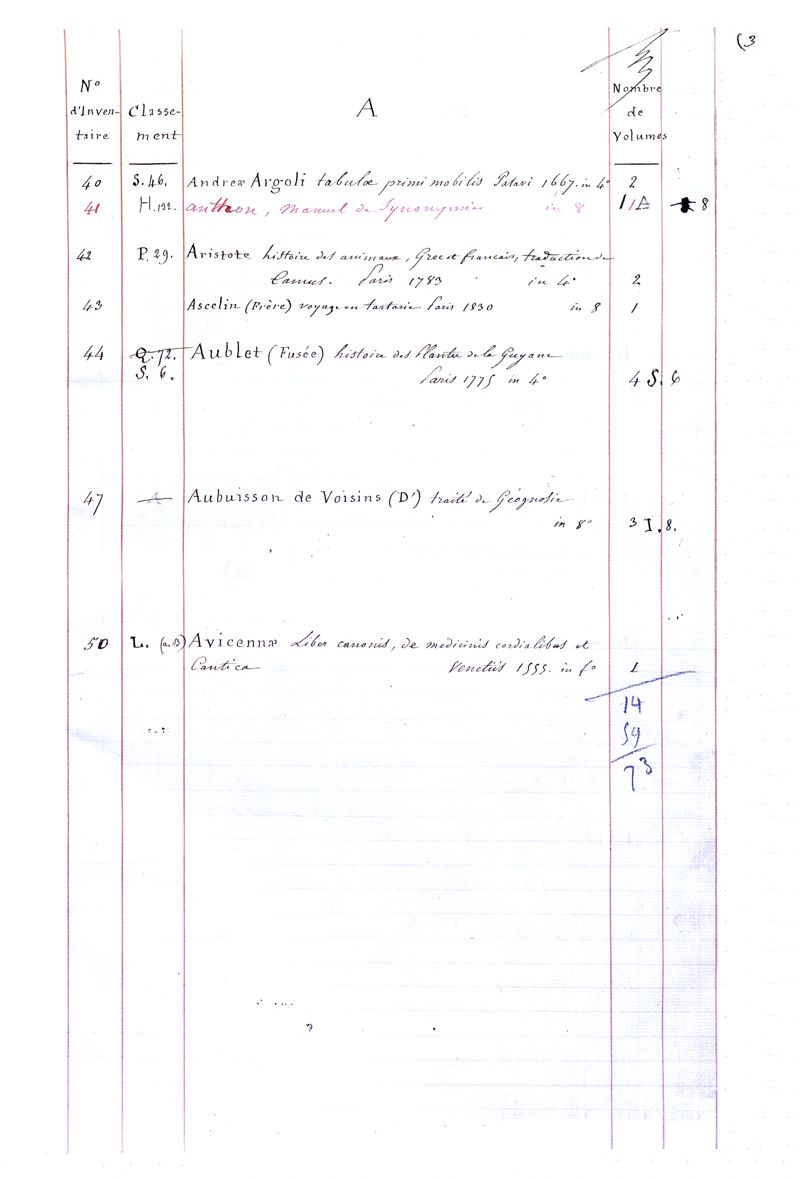 (3
N° d'Inven- taire Classe- ment A Nombre de Volumes
40 S. 46. Andreæ Argoli tabulæ primi mobilis Patavi 1667. in 4° 2
41 H.122. antheon, Manuel de Synonymie in 8 1 8
42 P. 29. Aristote histoire des animaux, Grec et francais, traduction de
Camus. Paris 1783 in 4° 2
43 Ascelin (Frère) voyage en tartarie Paris 1830 in 8 1
44 Q. 72. Aublet (Fusée) histoire des Plantes de la Guyane
S. 6. Paris 1775 in 4° 4 S. 6
47 A Aubuisson de Voisins (D') traité de Géognosie
in 8° 3 I. 8.
50 L. (a.B) Avicennæ Liber canonis, de medicinis cordialibus et
Cantica Venetiis 1555. in f° 1
14
59
73